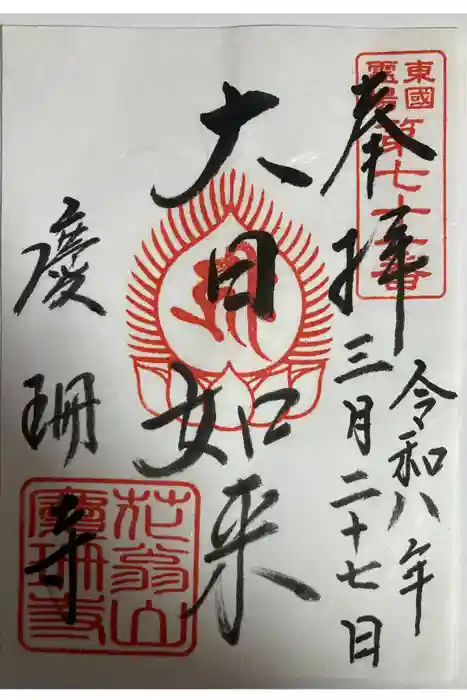 東國
靈場
奉拝
令和八年
三月二十七日
大日如来
慶珊寺
花翁山
慶珊寺